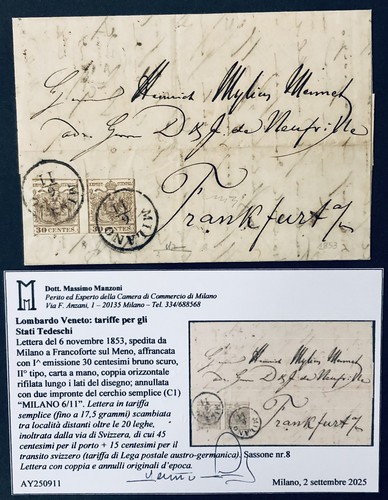 Herrn Heinrich Mylius
D & J. de Neufville
Frankfurt a/
MILANO
6
11
30 CENTES.
30 CENTES.
MILANO
6
11
1853
M
Dott. Massimo Manzoni
Perito ed Esperto della Camera di Commercio di Milano
Via F. Anzani, 1 – 20135 Milano – Tel. 334/688568
Lombardo Veneto: tariffe per gli
Stati Tedeschi
Lettera del 6 novembre 1853, spedita da
Milano a Francoforte sul Meno, affrancata
con I^ emissione 30 centesimi bruno scuro,
II° tipo, carta a mano, coppia orizzontale
rifilata lungo i lati del disegno; annullata
con due impronte del cerchio semplice (C1)
"MILANO 6/11". Lettera in tariffa
semplice (fino a 17,5 grammi) scambiata
tra località distanti oltre le 20 leghe,
inoltrata dalla via di Svizzera, di cui 45
centesimi per il porto + 15 centesimi per il
transito svizzero (tariffa di Lega postale austro-germanica). Sassone nr.8
Lettera con coppia e annulli originali d'epoca.
AY250911
Milano, 2 settembre 2025